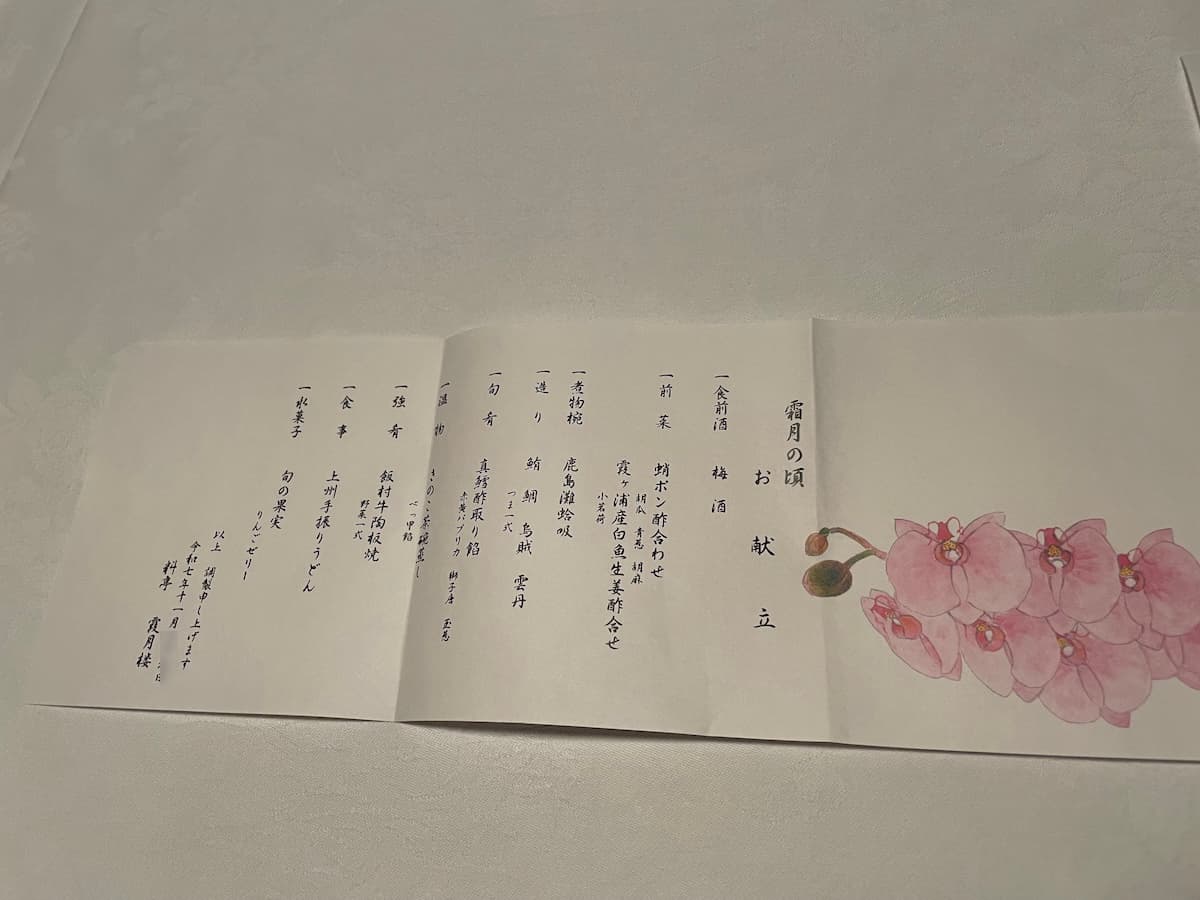 霜月の頃
お献立
一食前酒 梅酒
一前菜 蛸ポン酢合わせ
胡瓜 青葱 胡麻
霞ヶ浦産白魚生姜酢合せ
小茗荷
一煮物椀 鹿島灘蛤吸
一造り 鮪 鯛 烏賊 雲丹
つま一式
一旬肴 真鱈酢取り餡
赤黄パプリカ 獅子唐 玉葱
一温物 きのこ茶碗蒸し
べっ甲餡
一強肴 飯村牛陶板焼
野菜一式
一食事 上州手振りうどん
一水菓子 旬の果実
りんごゼリー
以上 調製申し上げます
令和七年十一月
料亭 霞月楼